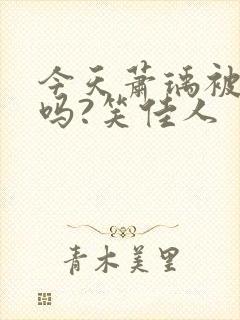 今天萧瑀被
吗?笑佳人
青木美里